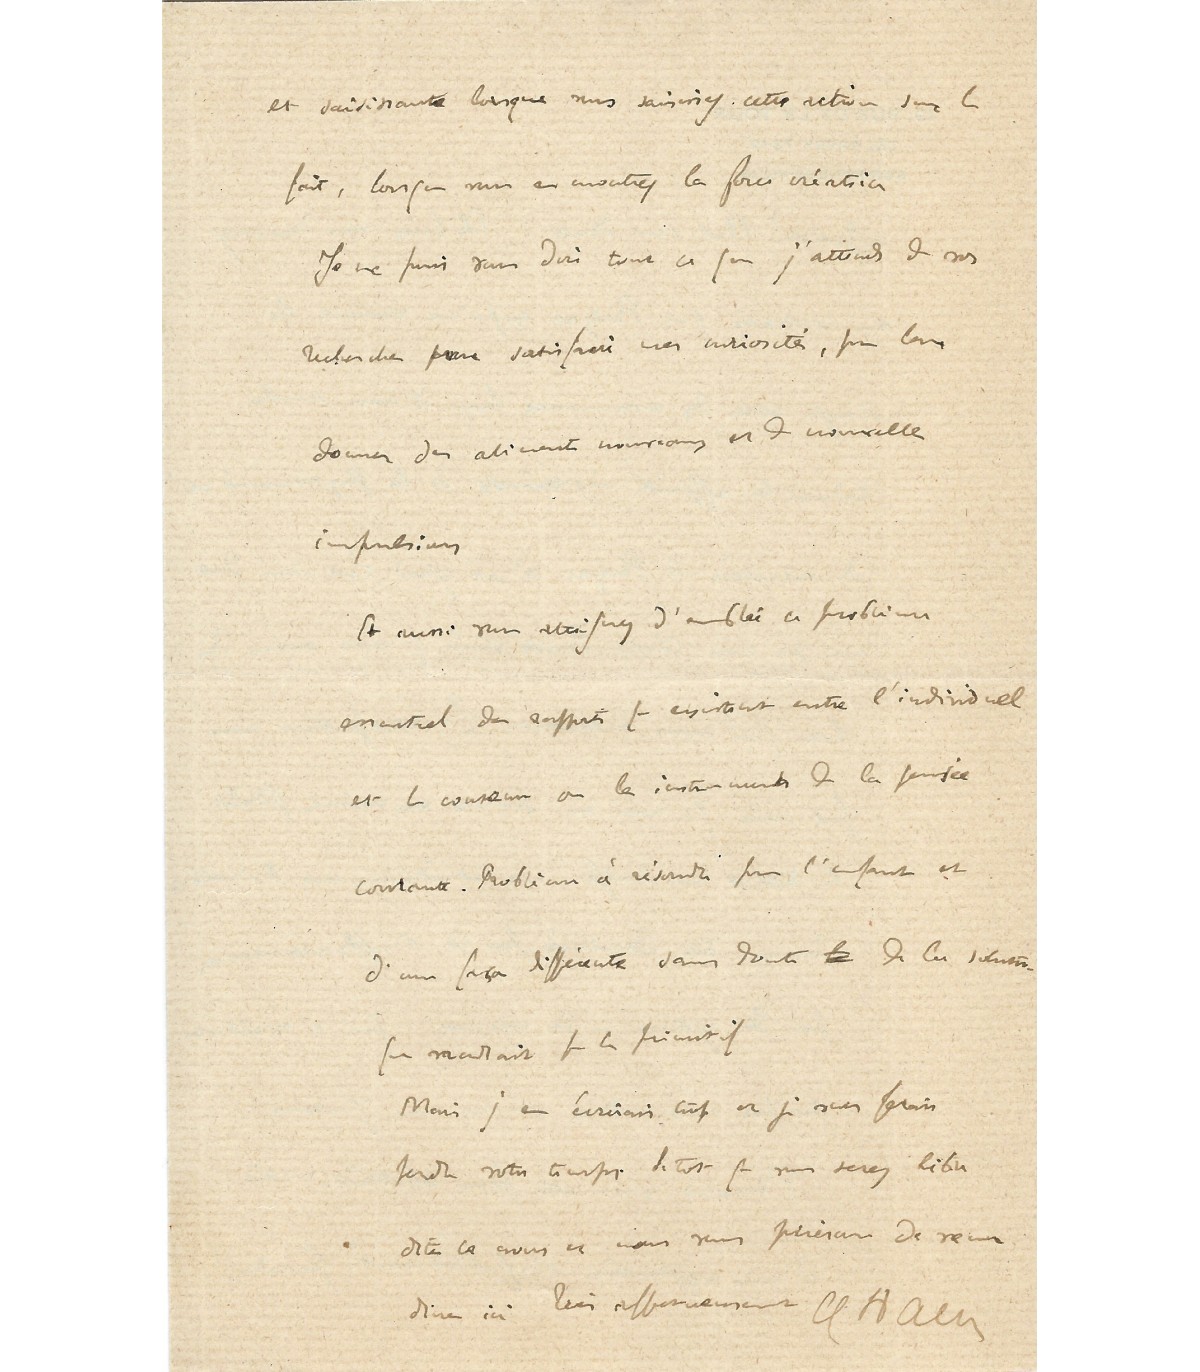 et saisissante lorsque vous saisissez cette action sur le
fait, lorsque vous en montrez la force créatrice
Je ne puis vous dire tout ce que j'attends de vos
recherches pour satisfaire mes curiosités, pour leur
donner des aliments nouveaux et de nouvelles
impulsions
Et aussi vous atteignez d'emblée ce problème
essentiel des rapports qui existent entre l'individuel
et le commun ou les instruments de la pensée
courante. Problème à résoudre pour l'enfant et
d'une façon différente sans doute de la solution
que voudrait le primitif
Mais j'en écrirais trop et je vous ferais
perdre votre temps. Sitôt que vous serez libre
dites le nous et nous vous prierons de venir
dîner ici Très affectueusement